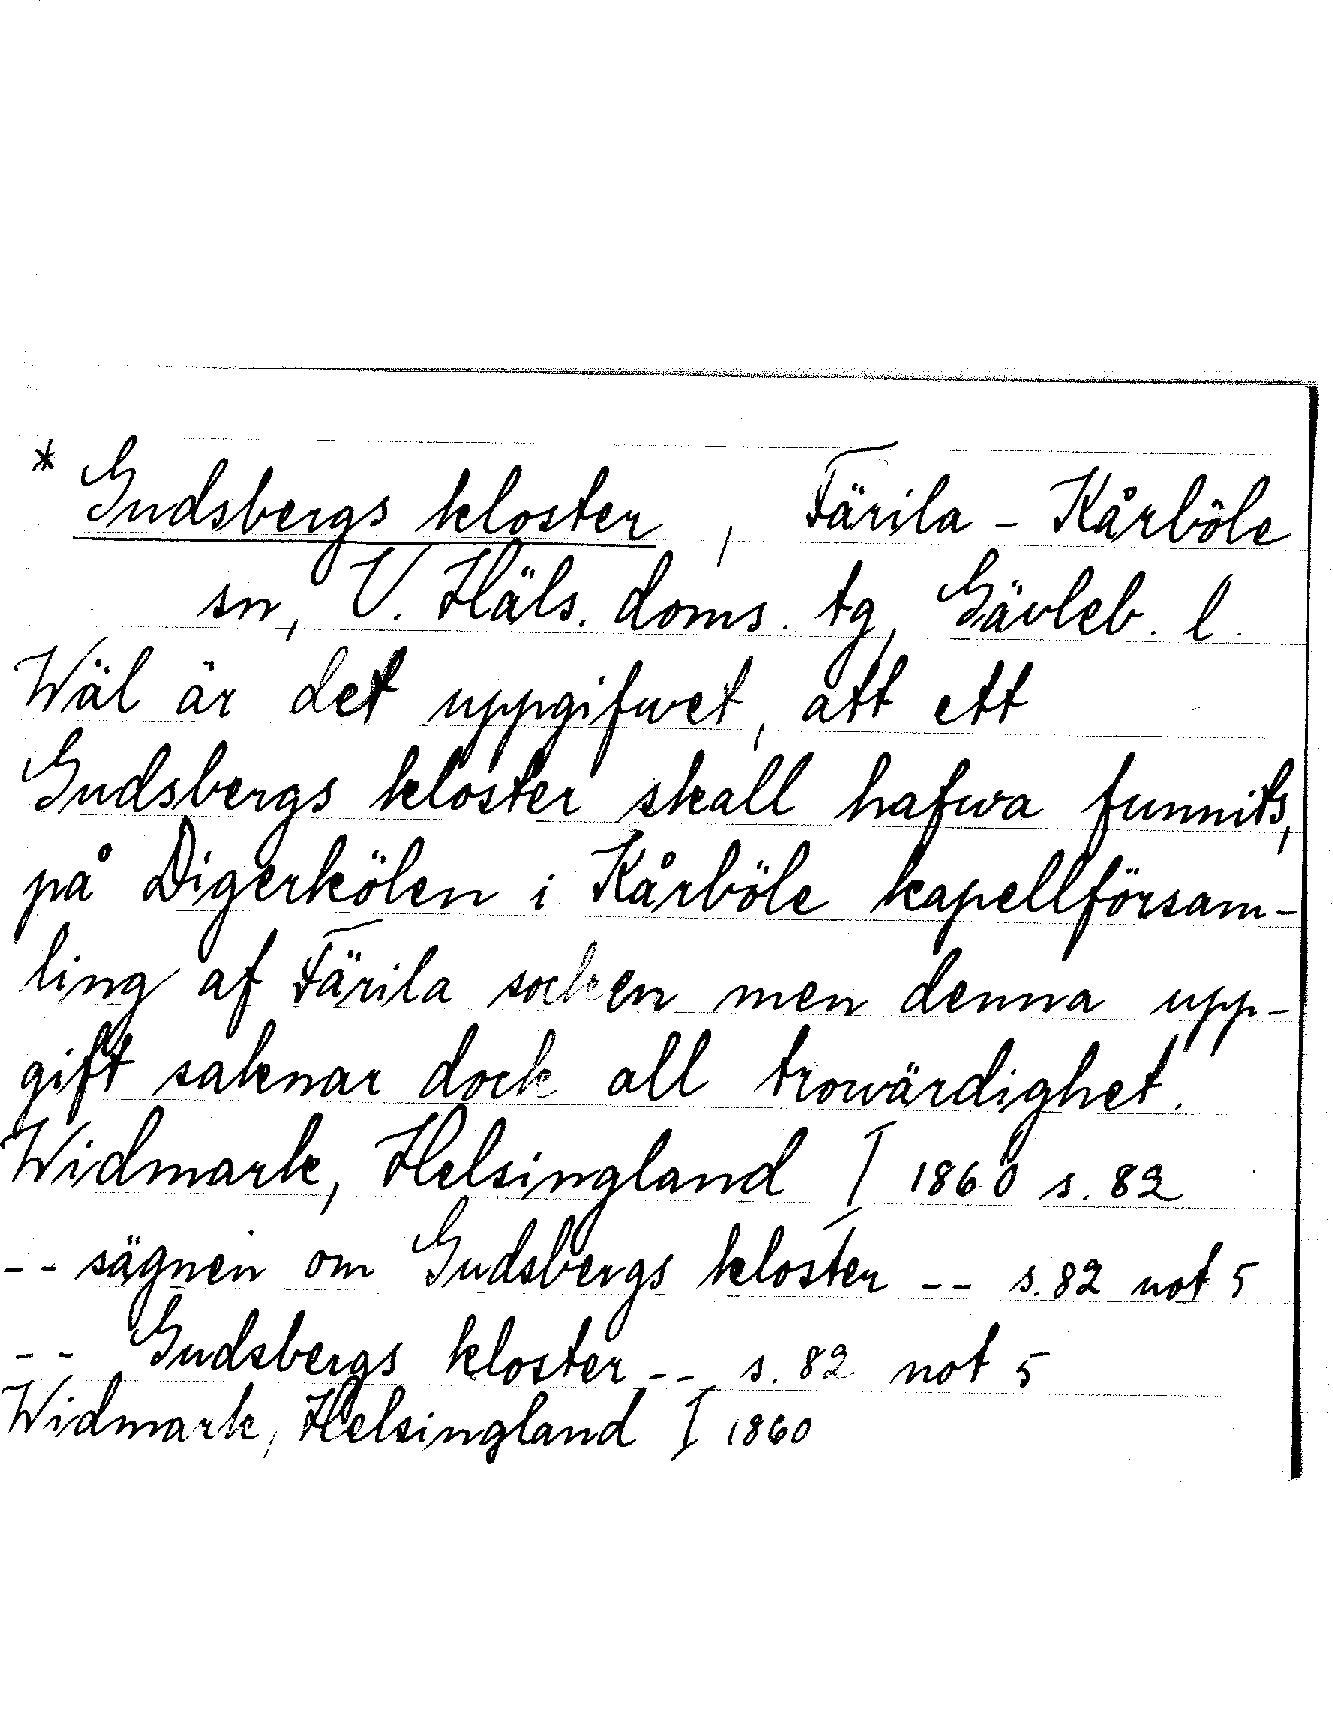 * Gudsbergs kloster, Färila - Kårböle
sn, V. Häls. doms. tg, Gävleb. l.
Wäl är det uppgifwet, att ett
Gudsbergs kloster skall hafwa funnits,
på Digerkölen i Kårböle kapellförsam-
ling af Färila socken men denna upp-
gift saknar dock all trowärdighet.
Widmark, Helsingland I 1860 s. 82
-- sägnen om Gudsbergs kloster -- s. 82 not 5
-- Gudsbergs kloster -- s. 82 not 5
Widmark, Helsingland I 1860